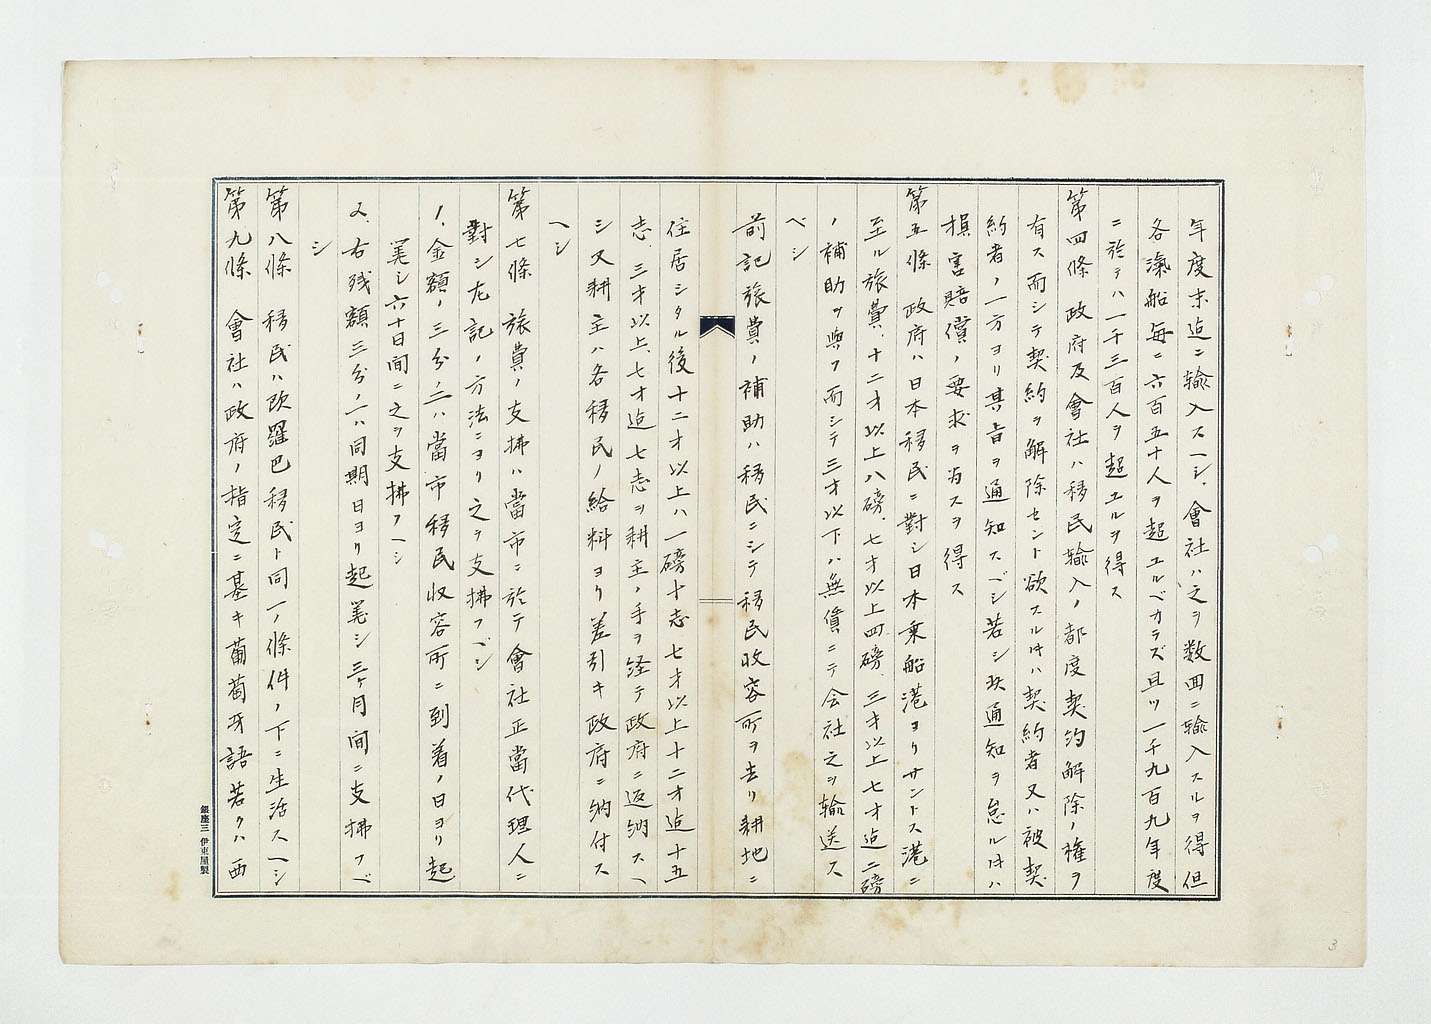 年度末迠ニ輸入スヘシ、會社ハ之ヲ数囬ニ輸入スルヲ得但
各滊船毎ニ六百五十人ヲ超エルベカラズ且ツ一千九百九年度
ニ於テハ一千三百人ヲ超エルヲ得ス
第四條 政府及會社ハ移民輸入ノ都度契約解除ノ権ヲ
有ス而シテ契約ヲ解除セント欲スル时ハ契約者又ハ被契
約者ノ一方ヨリ其旨ヲ通知スベシ若シ此通知ヲ怠ル时ハ
損害賠償ノ要求ヲ为スヲ得ス
第五條 政府ハ日本移民ニ對シ日本乗船港ヨリサントス港ニ
至ル旅費、十二才以上八磅、七才以上四磅、三才以上七才迠二磅
ノ補助ヲ與フ而シテ三才以下ハ無償ニテ会社之ヲ輸送ス
ベシ
前記旅費ノ補助ハ移民ニシテ移民收容所ヲ去リ耕地ニ
住居シタル後十二才以上ハ一磅十志七才以上十二才迠十五
志、三才以上、七才迠七志ヲ耕主ノ手ヲ経テ政府ニ返納スヘ
シ又耕主ハ各移民ノ給料ヨリ差引キ政府ニ納付ス
ヘシ
第七條 旅費ノ支拂ハ當市ニ於テ會社正當代理人ニ
對シ左記ノ方法ニヨリ之ヲ支拂フベシ
1、金額ノ三分ノ二ハ當市移民收容所ニ到着ノ日ヨリ起
筭シ六十日間ニ之ヲ支拂フヘシ
2、右残額三分ノ一ハ同期日ヨリ起筭シ三ヶ月間ニ支拂フベ
シ
第八條 移民ハ欧羅巴移民ト同一ノ條件ノ下ニ生活スヘシ
第九條 會社ハ政府ノ指定ニ基キ葡萄牙語若クハ西
銀座三 伊東屋製
3